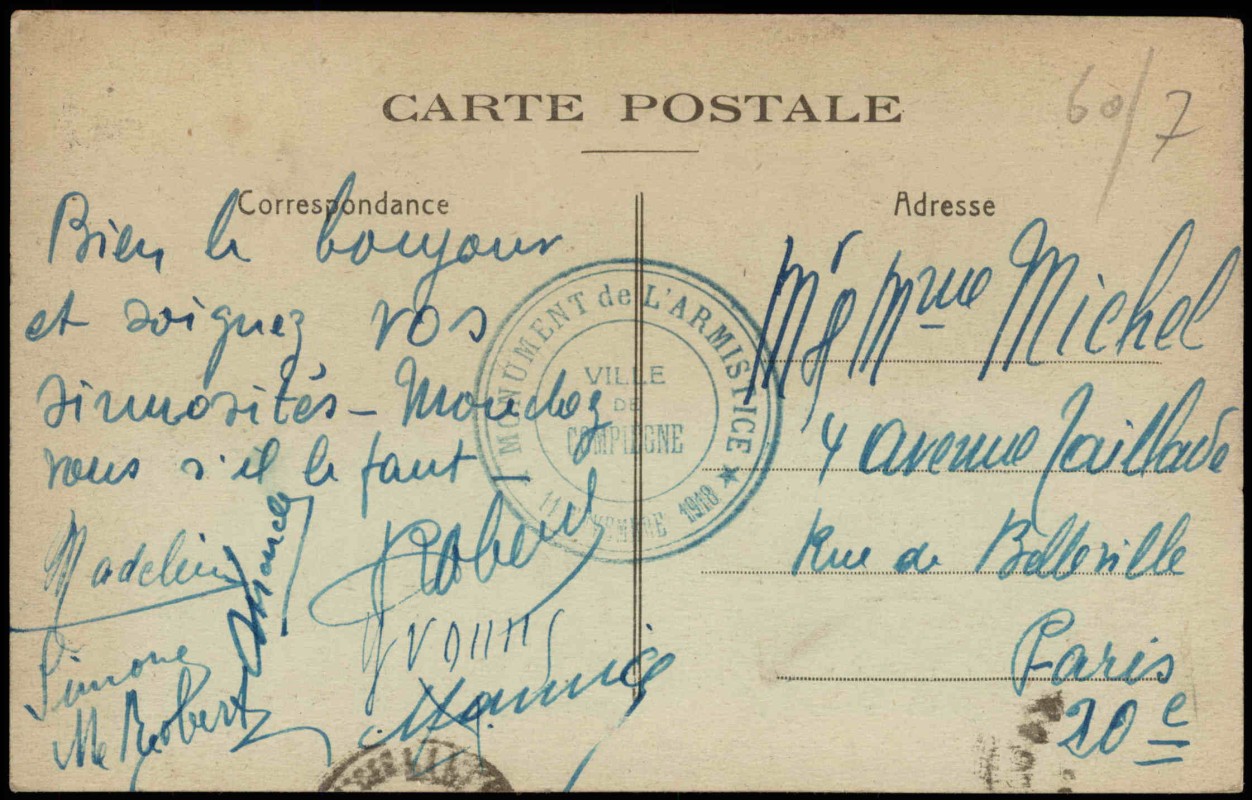 CARTE POSTALE
60/7
Correspondance
Bien le bonjour
et soignez vos
sinuosités - Mouchez
vous s'il le faut -
Madeleine
Robert
Yvonne
Simone
Me Robert
Maurice
MONUMENT de L'ARMISTICE
VILLE
DE
COMPIEGNE
11 NOVEMBRE 1918
Adresse
Mr & Mme Michel
4 avenue Taillade
Rue de Belleville
Paris
20e